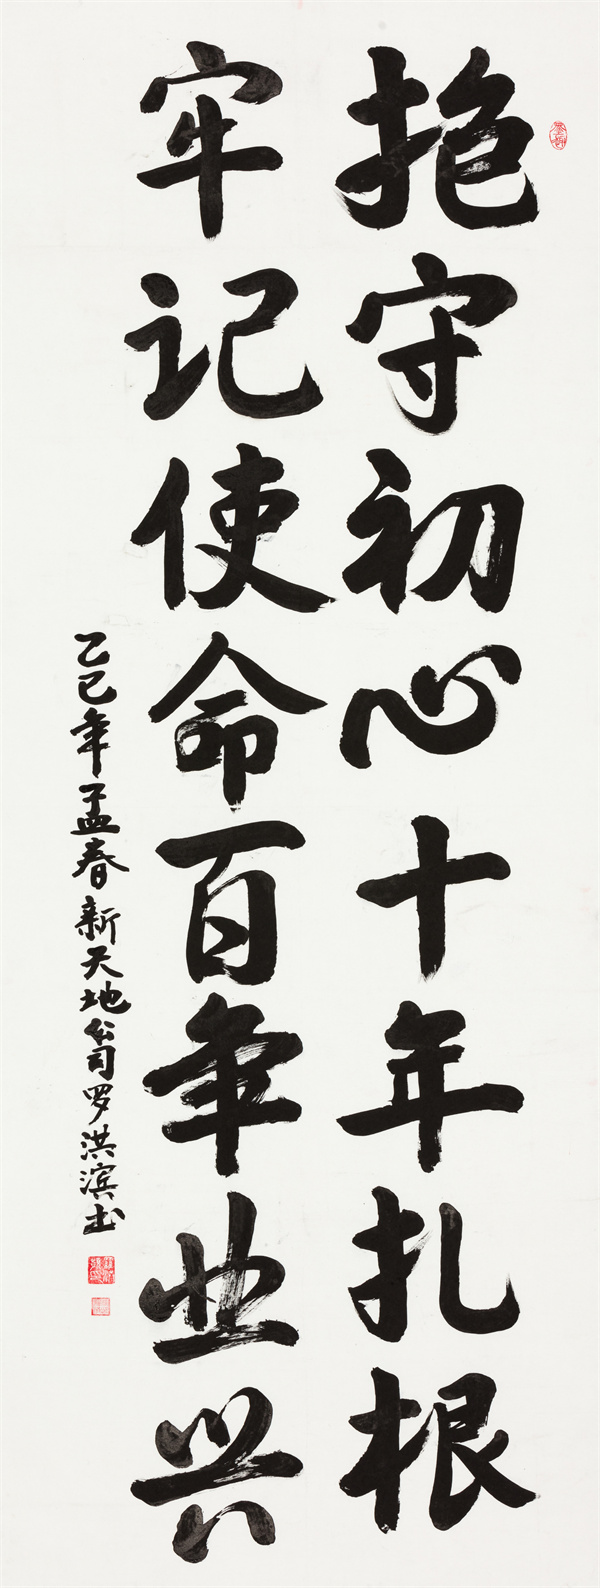 抱守初心十年扎根
牢记使命百年业兴
乙巳年孟春新天地公司罗洪滨书